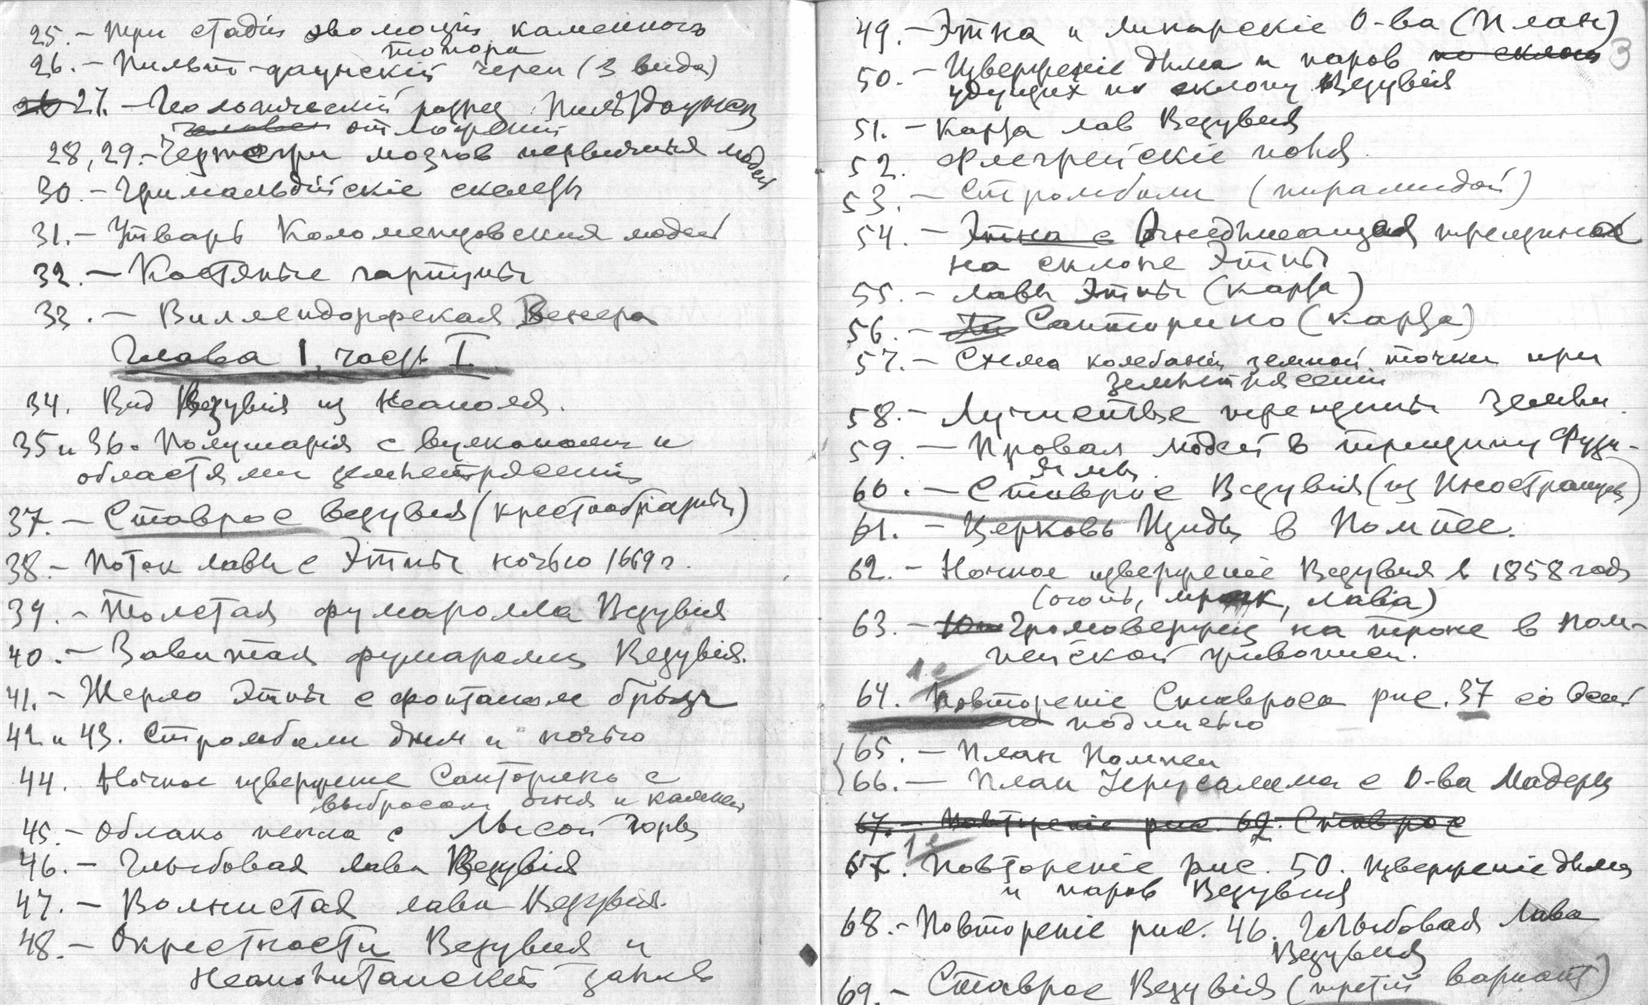 25. – Три стадіи эволюціи каменного
топора
26. – Пильтт-даунскій череп (3 вида)
27. – Геологическій разрез Пильтдоунск
отложеній
28, 29. – Чертежи мозгов первичных людей
30. – Гримальдійскіе скелеты
31. – Утварь Коломенцовских людей
32. – Костяные гарпуны
33. – Виллендорфская Венера
Глава I, часть I
34. Вид Везувія из Неаполя.
35 и 36. Полушарія с вулканами и
областями землетрясеній
37. – Ставрос Везувія (крестообразный)
38. – Поток лавы с Этны ночью 1669 г.
39. – Толстая фумаролла Везувія
40. – Завитая фумаролла Везувія.
41. – Жерло Этны с фонтаном брызг
42 и 43. Стромболи днем и ночью
44. Ночное изверженіе Санторино с
выбросом огня и камней
45. – Облако пепла с Лысой Горы
46. – Глыбовая лава Везувія
47. – Волнистая лава Везувія.
48. – Окрестности Везувія и
Неаполитанскій залив
3
49. – Этна и Липарскіе О-ва (План)
50. – Изверженіе дыма и паров по склону
идущих по склону Везувія
51. – Карта лав Везувія
52. Флегрейскіе поля.
53. – Стромболи (пирамидой)
54. – Этна с Огнедышащая трещина
на склоне Этны
55. – Лавы Этны (карта)
56. – Санторино (карта)
57. – Схема колебаній земной точки при
землетрясеніи
58. – Лучистые трещины земли.
59. – Провал людей в трещину Фузи-
ямы
60. – Ставрос Везувія (из Иностранцева)
61. – Церковь Изиды в Помпее.
62. – Ночное изверженіе Везувія в 1858 году
(огонь, мрак, лава)
63. – Громовержец на троне в Пом-
пейской живописи.
1.е
64. Повтореніе Ставроса рис. 37 со всей
подписью
65. – План Помпеи
66. – План Іерусалима с О-ва Мадеры
67. – Повтореніе рис. 62. Ставрос
1е
67. Повтореніе рис. 50. Изверженіе дыма
и паров Везувія
68. – Повтореніе рис. 46. Глыбовая лава
Везувія
69. – Ставрос Везувія (третій вариант)